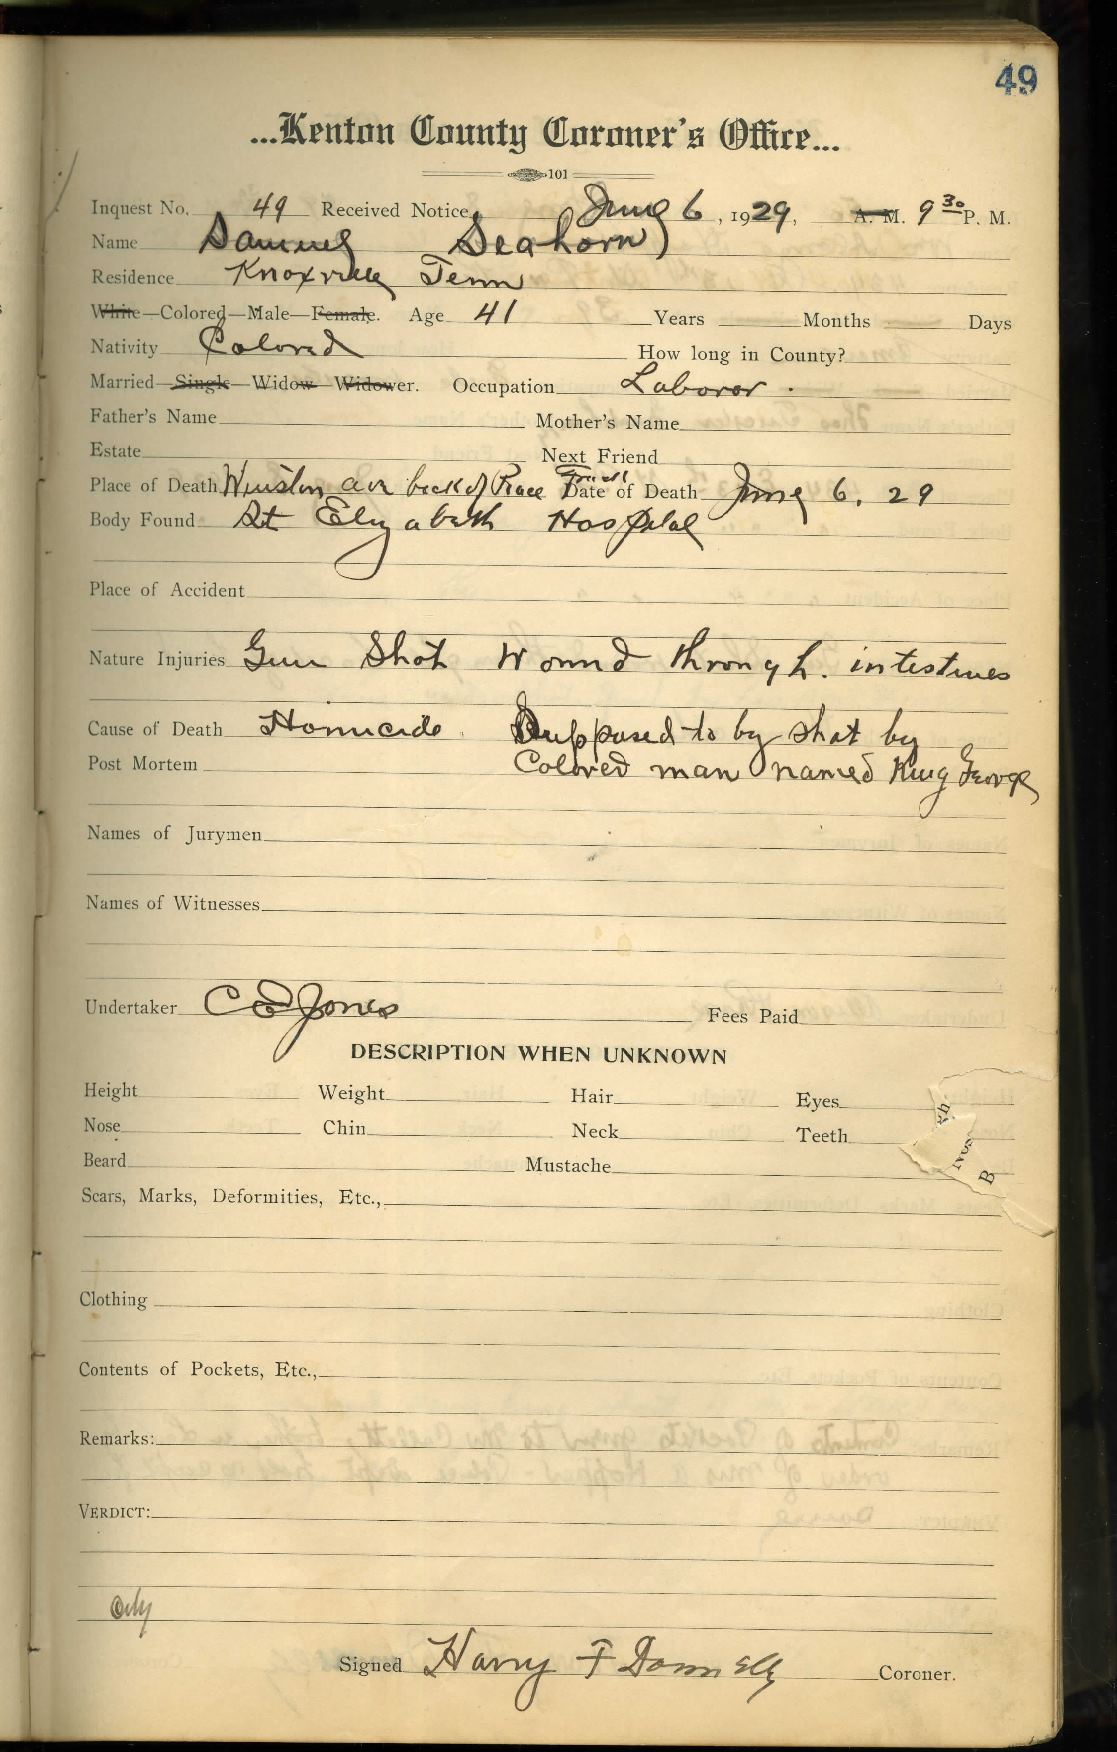 49
...Kenton County Coroner's Office...
101
Inquest No. 49 Received Notice June 6, 1929, A. M. 9 30 P. M.
Name Samuel Seahorn
Residence Knoxville Tenn
White—Colored—Male—Female. Age 41 Years Months Days
Nativity Colored How long in County?
Married—Single—Widow—Widower. Occupation Laboror.
Father's Name Mother's Name
Estate Next Friend
Place of Death Winston ave back of Race Track Date of Death June 6, 29
Body Found St Elizabeth Hospital
Place of Accident
Nature Injuries Gun Shot Wound through. intestines
Cause of Death Homicide. Supposed to by shot by
Post Mortem Colored man named King George
Names of Jurymen
Names of Witnesses
Undertaker C E Jones Fees Paid
DESCRIPTION WHEN UNKNOWN
Height Weight Hair Eyes
Nose Chin Neck Teeth
Beard Mustache
Scars, Marks, Deformities, Etc.,
Clothing
Contents of Pockets, Etc.,
Remarks:
VERDICT:
Signed Harry F Donnelly Coroner.